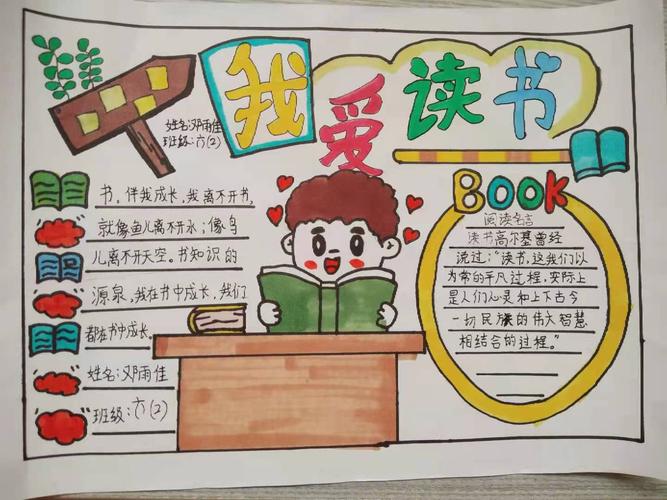 我爱读书
姓名:邓雨佳
班级:六(2)
书,伴我成长,我离不开书,
就像鱼儿离不开水;像鸟
儿离不开天空。书知识的
源泉,我在书中成长,我们
都在书中成长。
姓名:邓雨佳
班级:六(2)
BOOK
阅读名言
读书高尔基曾经
说过:“读书,这我们以
为常的平凡过程,实际上
是人们心灵和上下古今
一切民族的伟大智慧
相结合的过程。”